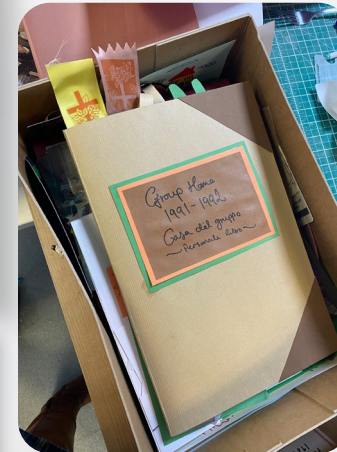 Group Home
1991-1992
Casa del gruppo
~ Personale libro ~